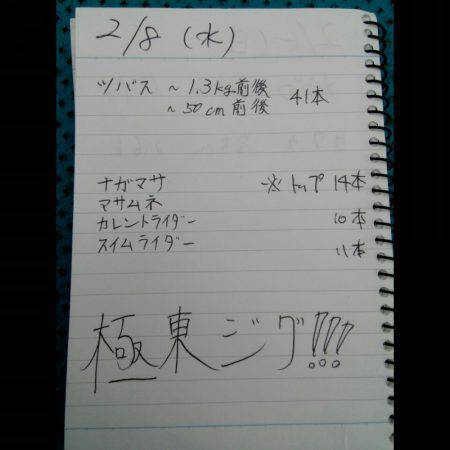 2/8 (水)
ツバス ~1.3kg前後
~50cm前後 41本
ナガマサ ※トップ 14本
マサムネ
カレントライダー 10本
スイムライダー 11本
極東ジグ!!!